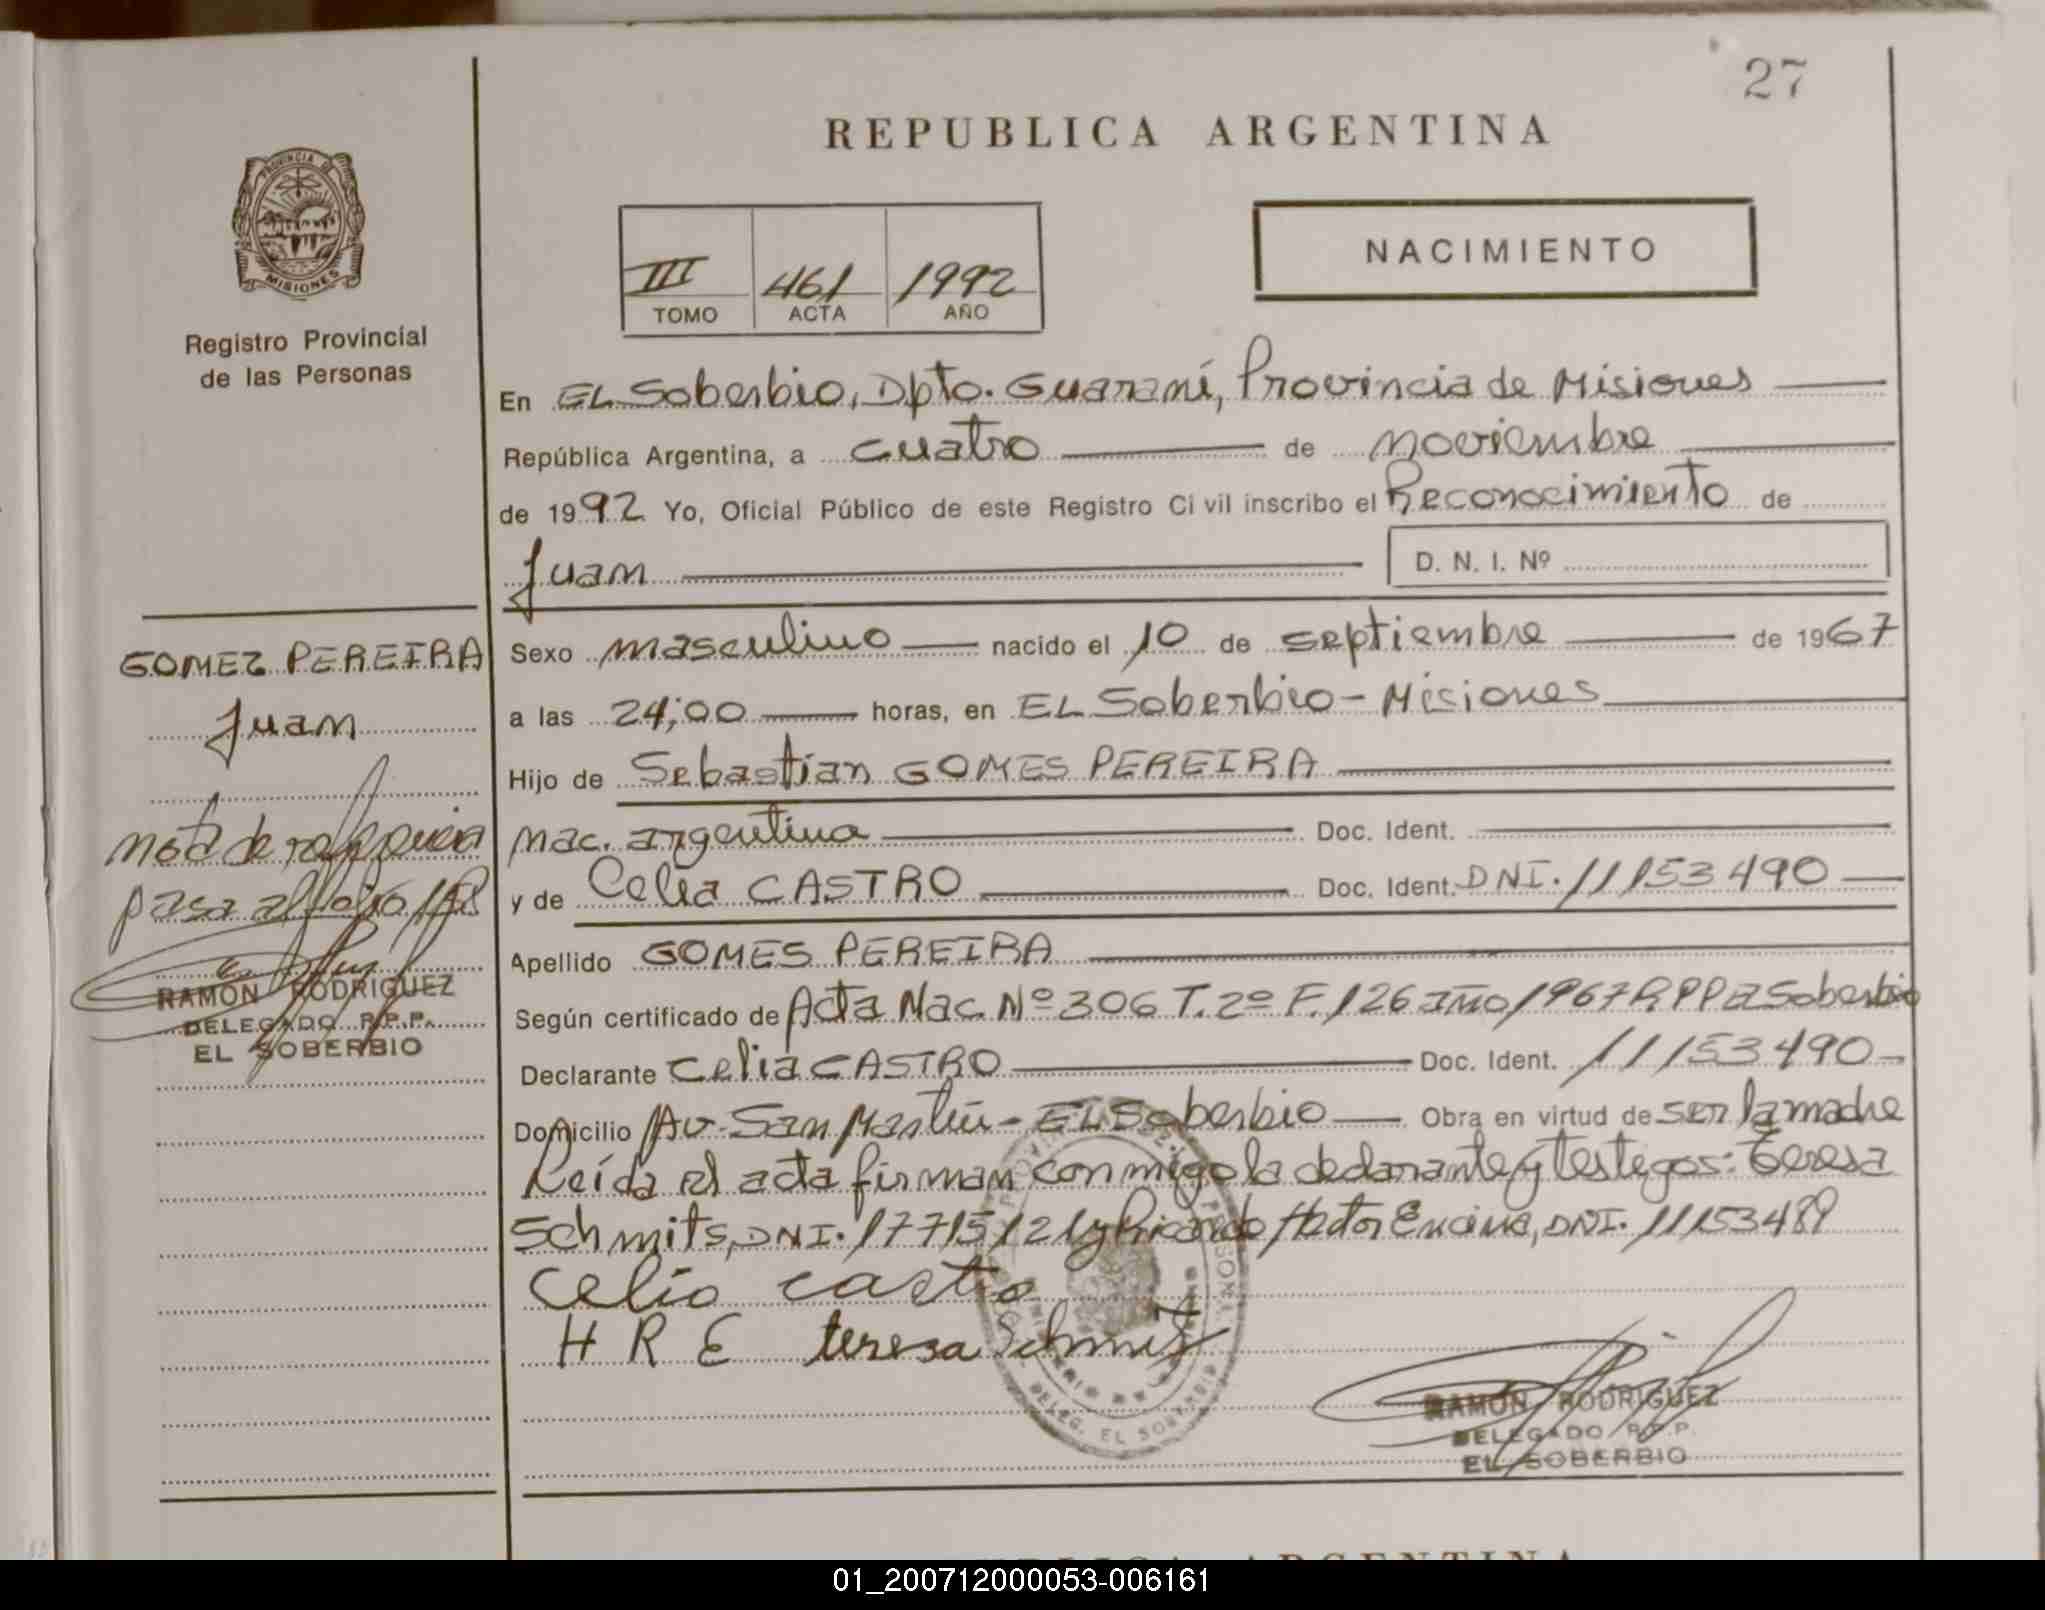 27
REPUBLICA ARGENTINA
PROVINCIA DE
MISIONES
Registro Provincial
de las Personas
III 461 1992
TOMO ACTA AÑO
NACIMIENTO
En EL Soberbio, Dpto. Guaraní, Provincia de Misiones
República Argentina, a cuatro de noviembre
de 1992 Yo, Oficial Público de este Registro Civil inscribo el Reconocimiento de
Juan D. N. I. Nº
GOMEZ PEREIRA
Juan
Nota de
pasa al folio
RAMON RODRIGUEZ
DELEGADO R.P.P.
EL SOBERBIO
Sexo masculino nacido el 10 de septiembre de 1967
a las 24;00 horas, en EL Soberbio - Misiones
Hijo de Sebastian GOMES PEREIRA
nac. argentina Doc. Ident.
y de Celia CASTRO Doc. Ident. DNI. 11153490
Apellido GOMES PEREIRA
Según certificado de Acta Nac. Nº 306 T. 2º F. 126 año 1967 R.P.P El Soberbio
Declarante Celia CASTRO Doc. Ident. 11153490
Domicilio AV. San Martín - EL Soberbio Obra en virtud de ser la madre
Leída el acta firman conmigo la declarante y testigos: Teresa
Schmits, DNI. 17715121 y Ricardo Hector Encina, DNI. 11153489
Celia castro
H R E teresa Schmit
DELEG. EL SOBERBIO
RAMON RODRIGUEZ
DELEGADO R.P.P.
EL SOBERBIO
01_200712000053-006161